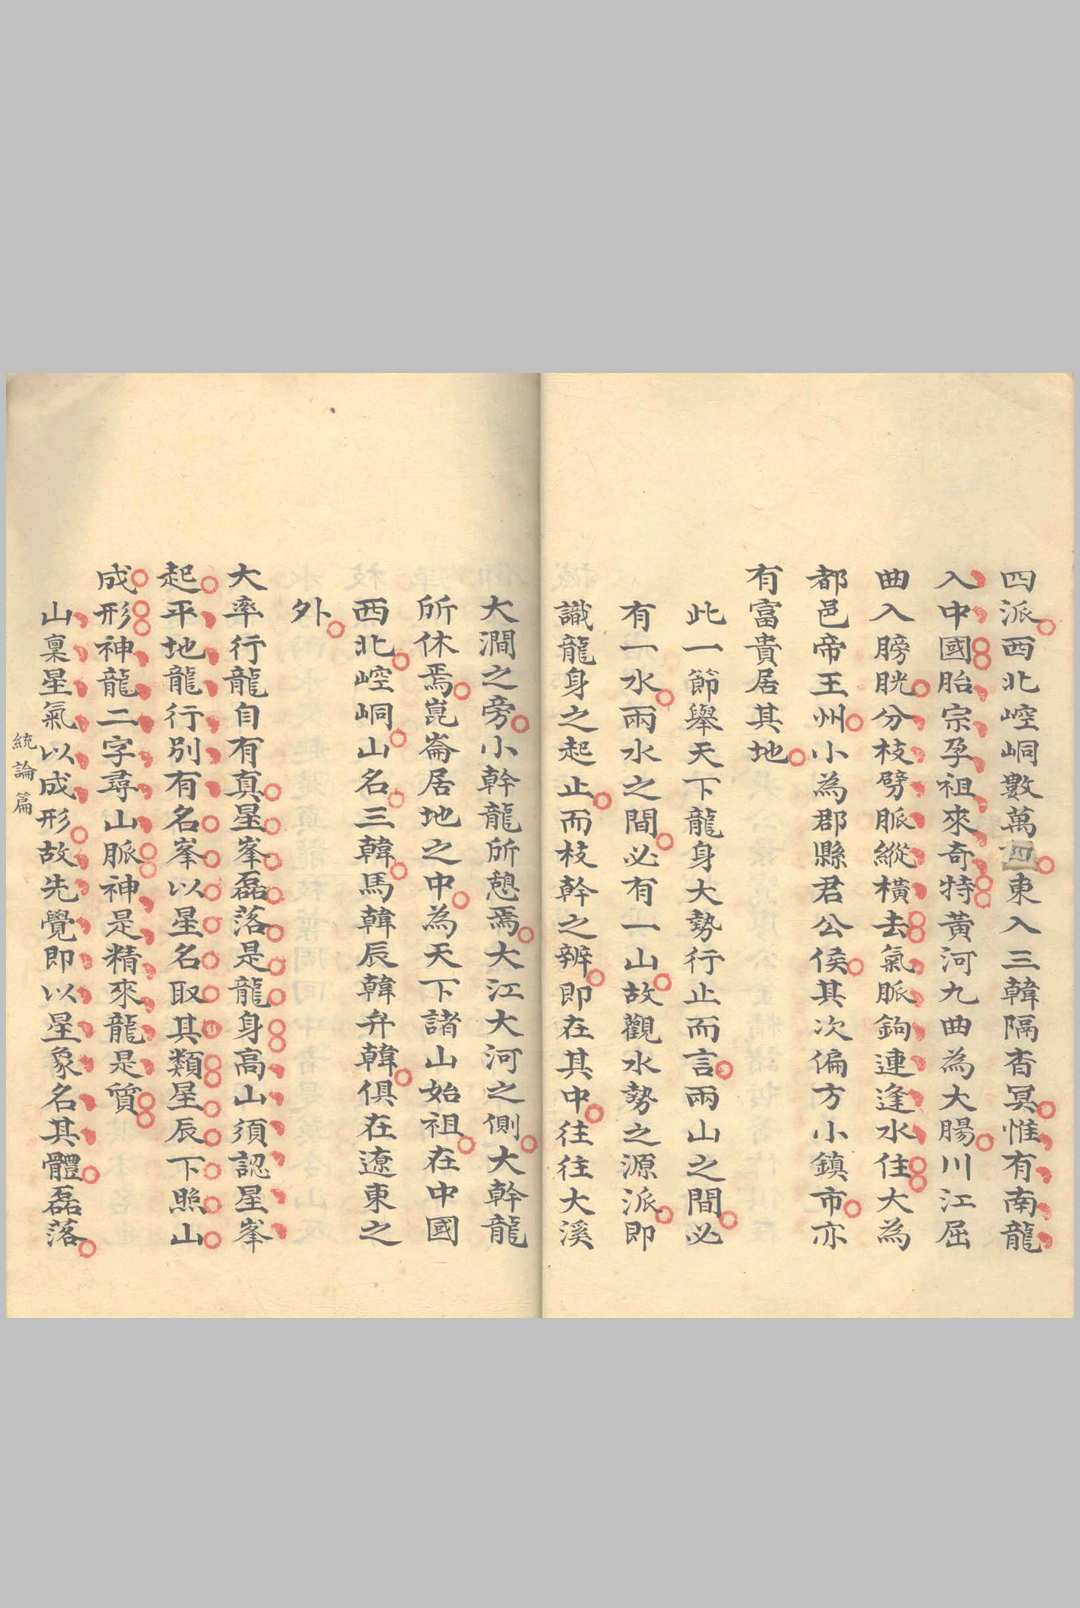 四派西北崆峒數萬四東入三韓隔杳冥惟有南龍
入中國胎宗孕祖來奇特黃河九曲為大腸川江屈
曲入膀胱分枝劈脈縱橫去氣脈鉤連逢水住大為
都邑帝王州小為郡縣君公侯其次偏方小鎮市亦
有富貴居其地
此一節舉天下龍身大勢行止而言兩山之間必
有一水兩水之間必有一山故觀水勢之源派即
識龍身之起止而枝幹之辨即在其中往往大溪
大澗之旁小幹龍所憩焉大江大河之側大幹龍
所休焉崑崙居地之中為天下諸山始祖在中國
西北崆峒山名三韓馬韓辰韓弁韓俱在遼東之
外
大率行龍自有真星峯磊落是龍身高山須認星峯
起平地龍行別有名峯以星名取其類星辰下照山
成形神龍二字尋山脈神是精來龍是質
山稟星氣以成形故先覺即以星象名其體磊落
統論篇